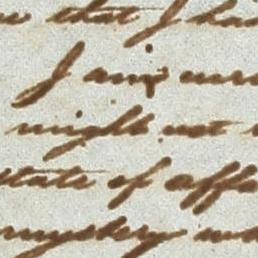 that I ha
I am
might not
state of affa
mystery